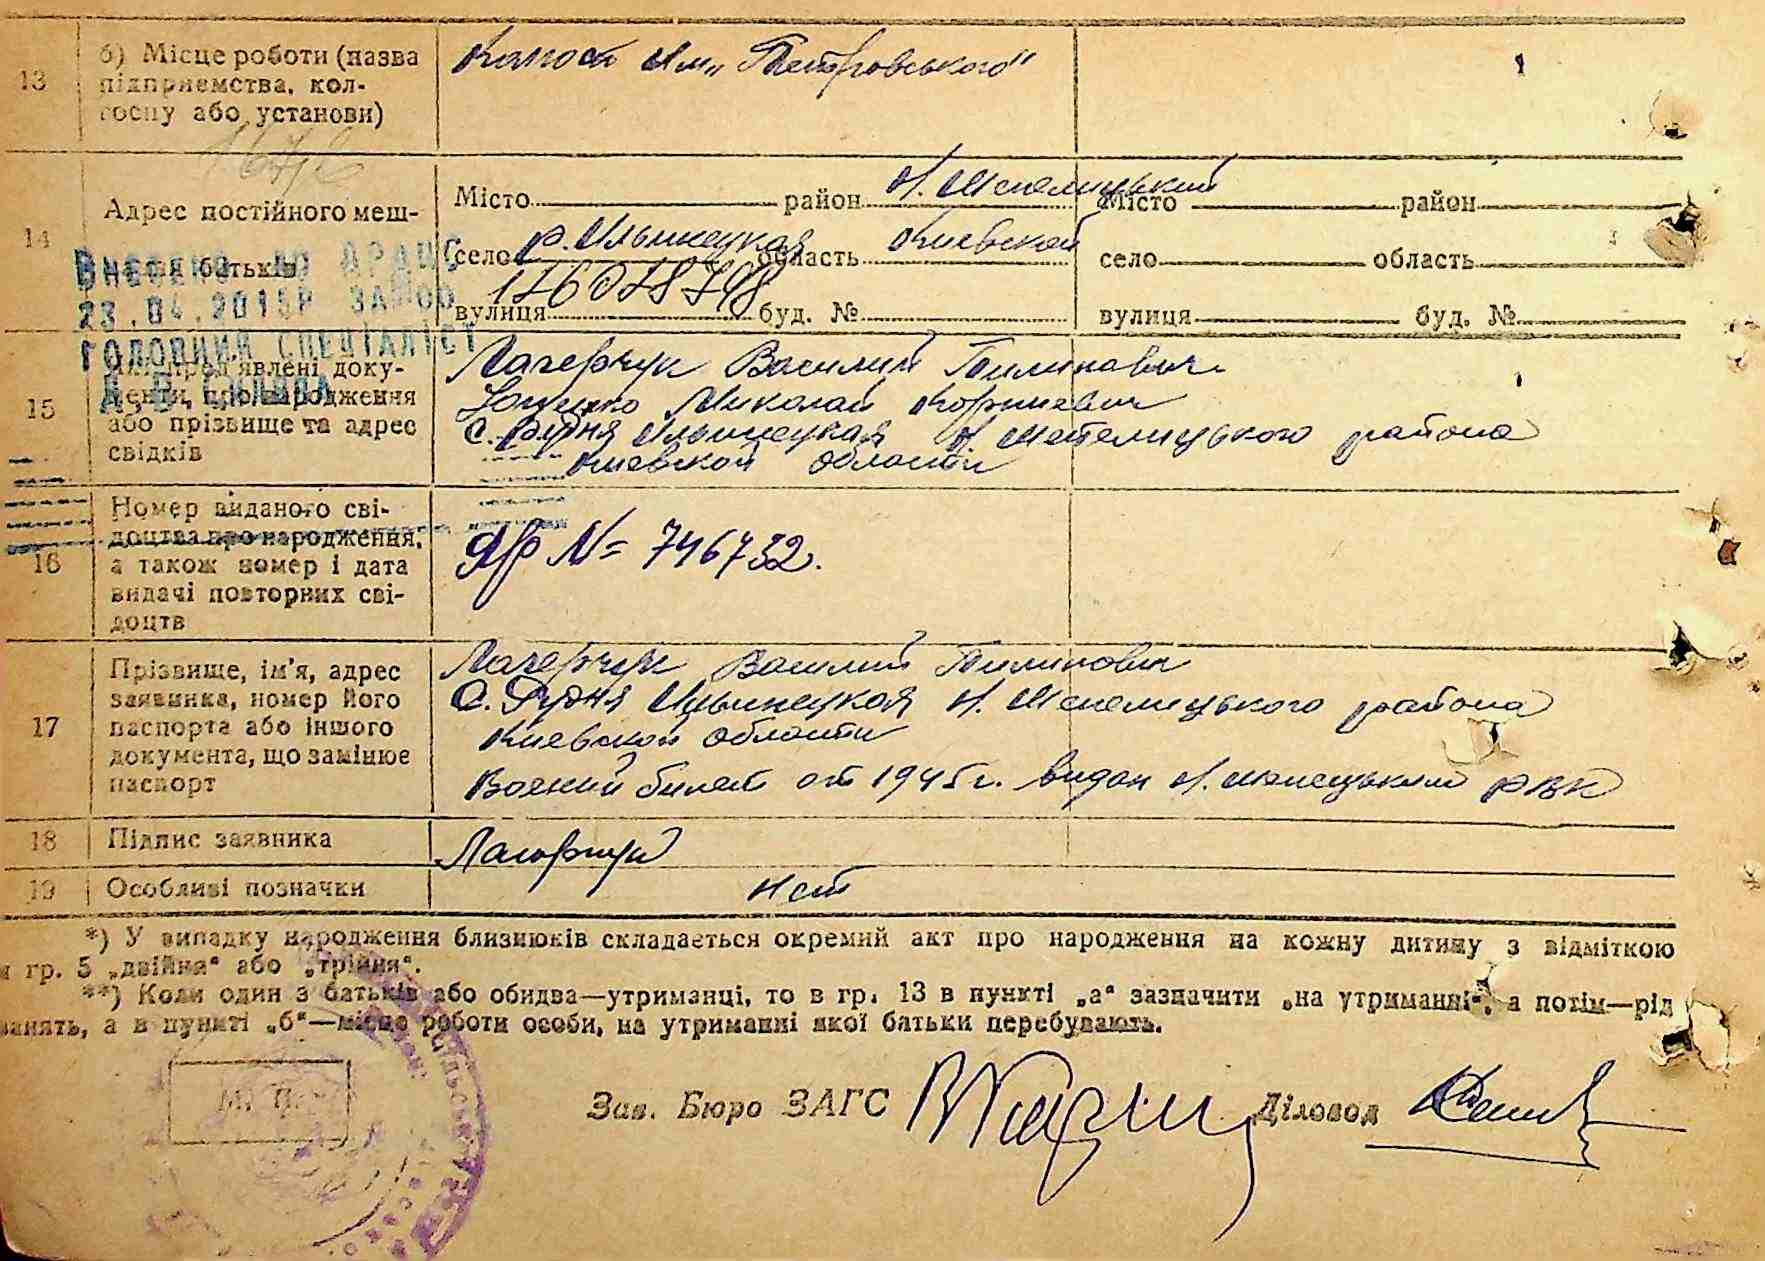 13 б) Місце роботи (назва підприємства, кол-
госпу або установи)
Колгосп Им „Петровського"
14 Адрес постійного меш-
кання батьків
Місто район Н. Шепелицький
село р. Ильинецкая область Киевской
вулиця буд. №
Місто район
село область
вулиця буд. №
ВНЕСЕНО ДО ДРАЦС
23.04.2015Р
ГОЛОВНИЙ СПЕЦІАЛІСТ
15 Пред'явлені доку-
менти про народження
або прізвище та адрес
свідків
Лагерчук Василий Пилипович
Миколай Корниевич
с. Рудня Ильинецкая Н. Шепелицького района
Киевской области
16 Номер виданого сві-
доцтва про народження,
а також номер і дата
видачі повторних сві-
доцтв
ЯР № 746732.
17 Прізвище, ім'я, адрес
заявника, номер його
паспорта або іншого
документа, що замінює
паспорт
Лагерчук Василий Пилипович
С. Рудня Ильинецкая Н. Шепелицького района
Киевской области
Военний билет от 1945 г. видан Н. РВК
18 Підпис заявника
Лагерчук
19 Особливі позначки
нет
*) У випадку народження близнюків складається окремий акт про народження на кожну дитину з відміткою
в гр. 5 „двійня" або „трійня".
**) Коли один з батьків або обидва—утриманці, то в гр. 13 в пункті „а" зазначити „на утриманні", а потім—рід
занять, а в пункті „б"—місце роботи особи, на утриманні якої батьки перебувають.
М. П.
Зав. Бюро ЗАГС Діловод